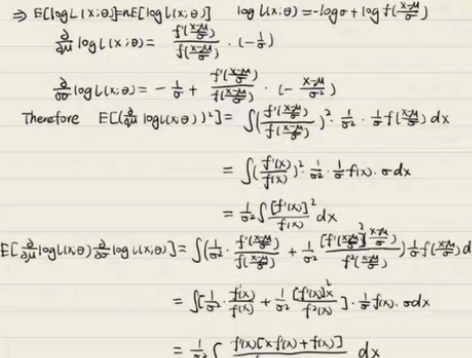 ⇒ E[logL(x;θ)]=nE[logL(x;θ)] logL(x;θ)=-logσ+logf((x-μ)/σ)
∂/∂μ logL(x;θ)= f'((x-μ)/σ)/f((x-μ)/σ) · (-1/σ)
∂/∂σ logL(x;θ)= -1/σ + f'((x-μ)/σ)/f((x-μ)/σ) · (-(x-μ)/σ²)
Therefore E[(∂/∂μ logL(x;θ))²]= ∫(f'((x-μ)/σ)/f((x-μ)/σ))² · 1/σ² · 1/σ f((x-μ)/σ) dx
= ∫(f'(x)/f(x))² · 1/σ² · 1/σ f(x) · σdx
= 1/σ² ∫ [f'(x)]²/f(x) dx
E[∂/∂μ logL(x;θ) ∂/∂σ logL(x;θ)]= ∫(1/σ² · f'((x-μ)/σ)/f((x-μ)/σ) + 1/σ² [f'((x-μ)/σ)]² (x-μ)/σ / f²((x-μ)/σ)) 1/σ f((x-μ)/σ) d
= ∫[1/σ² · f'(x)/f(x) + 1/σ² [f'(x)]²x/f²(x)] · 1/σ f(x) · σdx
= 1/σ² ∫ f'(x)[xf'(x)+f(x)] dx